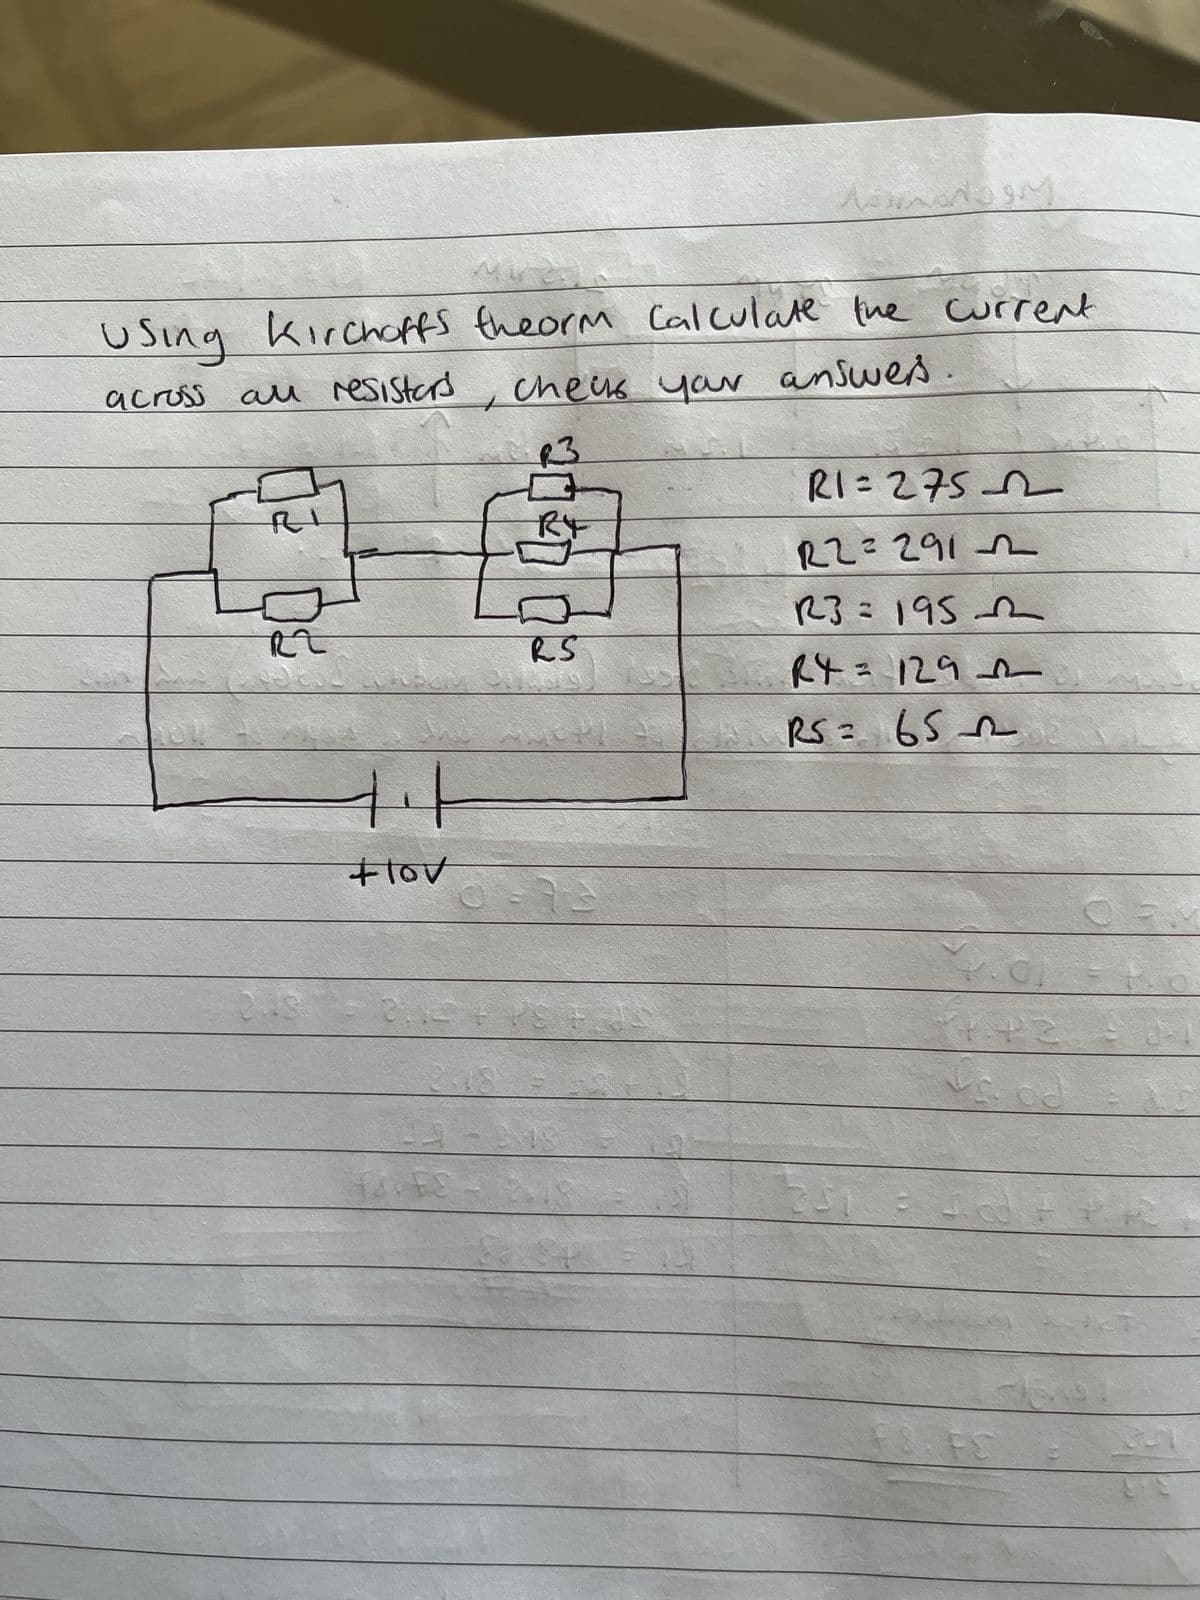 USing Kirchoffs theorm Calculate the current
across all resistors, check your answers.
R3
R1
R4
R2
R5
+10V
R1 = 275 Ω
R2 = 291 Ω
R3 = 195 Ω
R4 = 129 Ω
R5 = 65 Ω